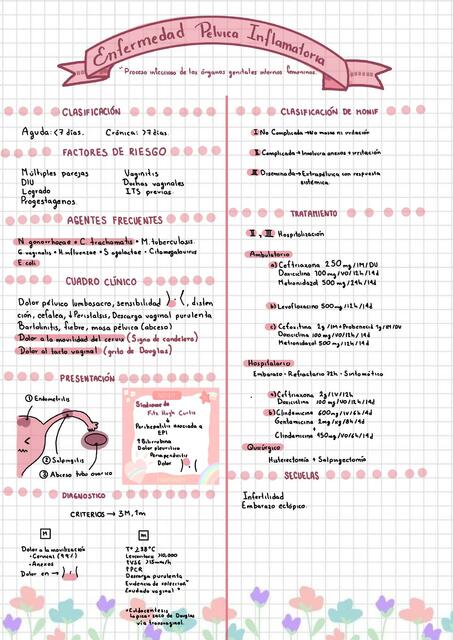 Enfermedad Pélvica Inflamatoria
"Proceso infeccioso de los órganos genitales internos femeninos.
CLASIFICACIÓN
Aguda: <7 días. Crónica: >7 días.
FACTORES DE RIESGO
Múltiples parejas Vaginitis
DIU Duchas vaginales
Legrado ITS previas
Progestagenos
AGENTES FRECUENTES
N. gonorrhoeae + C. trachomatis + M. tuberculosis.
G. vaginalis + H. influenzae + S agalactae - Citomegalovirus
E. coli
CUADRO CLÍNICO
Dolor pélvico lumbosacro, sensibilidad
ción, cefalea, ↓Peristalsis, Descarga vaginal purulenta
Bartolinitis, fiebre, masa pélvica (abceso)
Dolor a la movilidad del cervix (Signo de candelero)
Dolor al tacto vaginal (grito de Douglas)
PRESENTACIÓN
① Endometritis
② Salpingitis
③ Abceso tubo ovarico
Síndrome de
Fitz Hugh Curtis
Perihepatitis asociada a
EPI
↑Bilirrubina
Dolor pleurítico
Dolor
DIAGNOSTICO
CRITERIOS → 3M, 1m
M
Dolor a la movilización
• Cervical (99%)
• Anexos
Dolor en →
m
T° ≥38°C
Leucocitos >10,000
↑VSG >15mm/h
↑PCR
Descarga purulenta
Exudado vaginal
• Culdocentesis
vía transvaginal.
CLASIFICACIÓN DE MONIF
I No Complicada → No masa ni irritación
II Complicada → Involucra anexos + irritación
III Diseminada → Extrapélvica con respuesta
sistémica.
TRATAMIENTO
II, III Hospitalización
Ambulatorio
a) Ceftriaxona 250mg /IM/DU
Doxiciclina 100mg /VO/12h/14d
Metronidazol 500mg /24h/14d
b) Levofloxacino 500mg /12h/14d
c) Cefoxitina 2g /IM + Probenecid 1g/
Doxiciclina 100mg /VO/12h/14d
Metronidazol 500mg /12h/14d
Hospitalario
Embarazo - Refractario 72h - Sintomático
a) Ceftriaxona 2g/IV/12h
Doxiciclina 100mg /VO/12h/14d
b) Clindamicina 600mg/IV/6h/4d
Gentamicina 2mg/kg/8h/4d
+
Clindamicina 450mg/VO/6h/14d
Quirúrgico
Histerectomía + Salpingectomía
SECUELAS
Infertilidad
Embarazo ectópico.